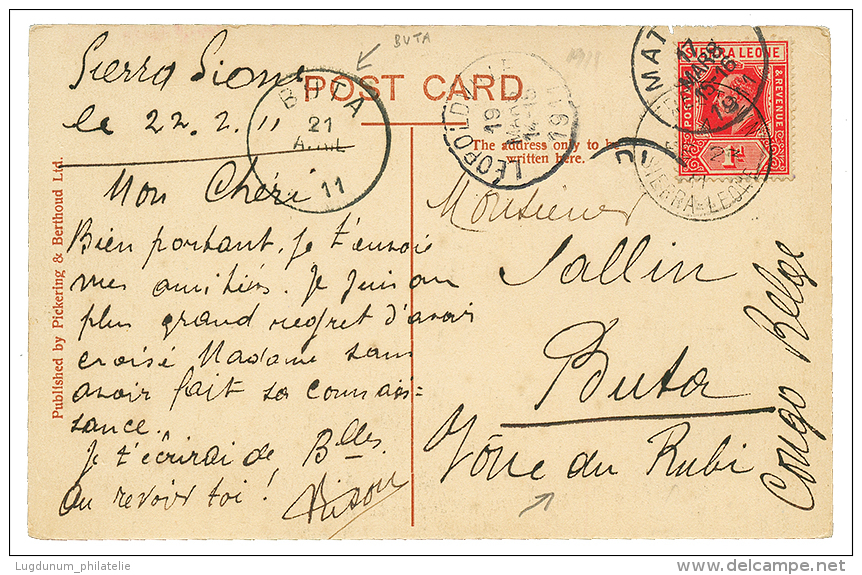 Sierra Leone
le 22. 2. 11
Mon Chéri
Bien portant, je t'envoie
mes amitiés. Je suis au
plus grand regret d'avoir
croisé Madame sans
avoir fait sa connais=
sance.
Je t'écrirai de Blles
Au revoir toi !
POST CARD
The address only to be
written here.
Monsieur
Sallin
Buta
Zône du Rubi
Congo Belge
Published by Pickering & Berthoud Ltd.
BUTA
1911
BUTA
21
AVRIL
11
LEOPOLDVILLE
19
MARS
1911
MAT
17
MARS
15-16
1911
SIERRA LEONE
POSTAGE
& REVENUE
1d
SIERRA-LEONE
Lugdunum_philatelie
delcampe.net